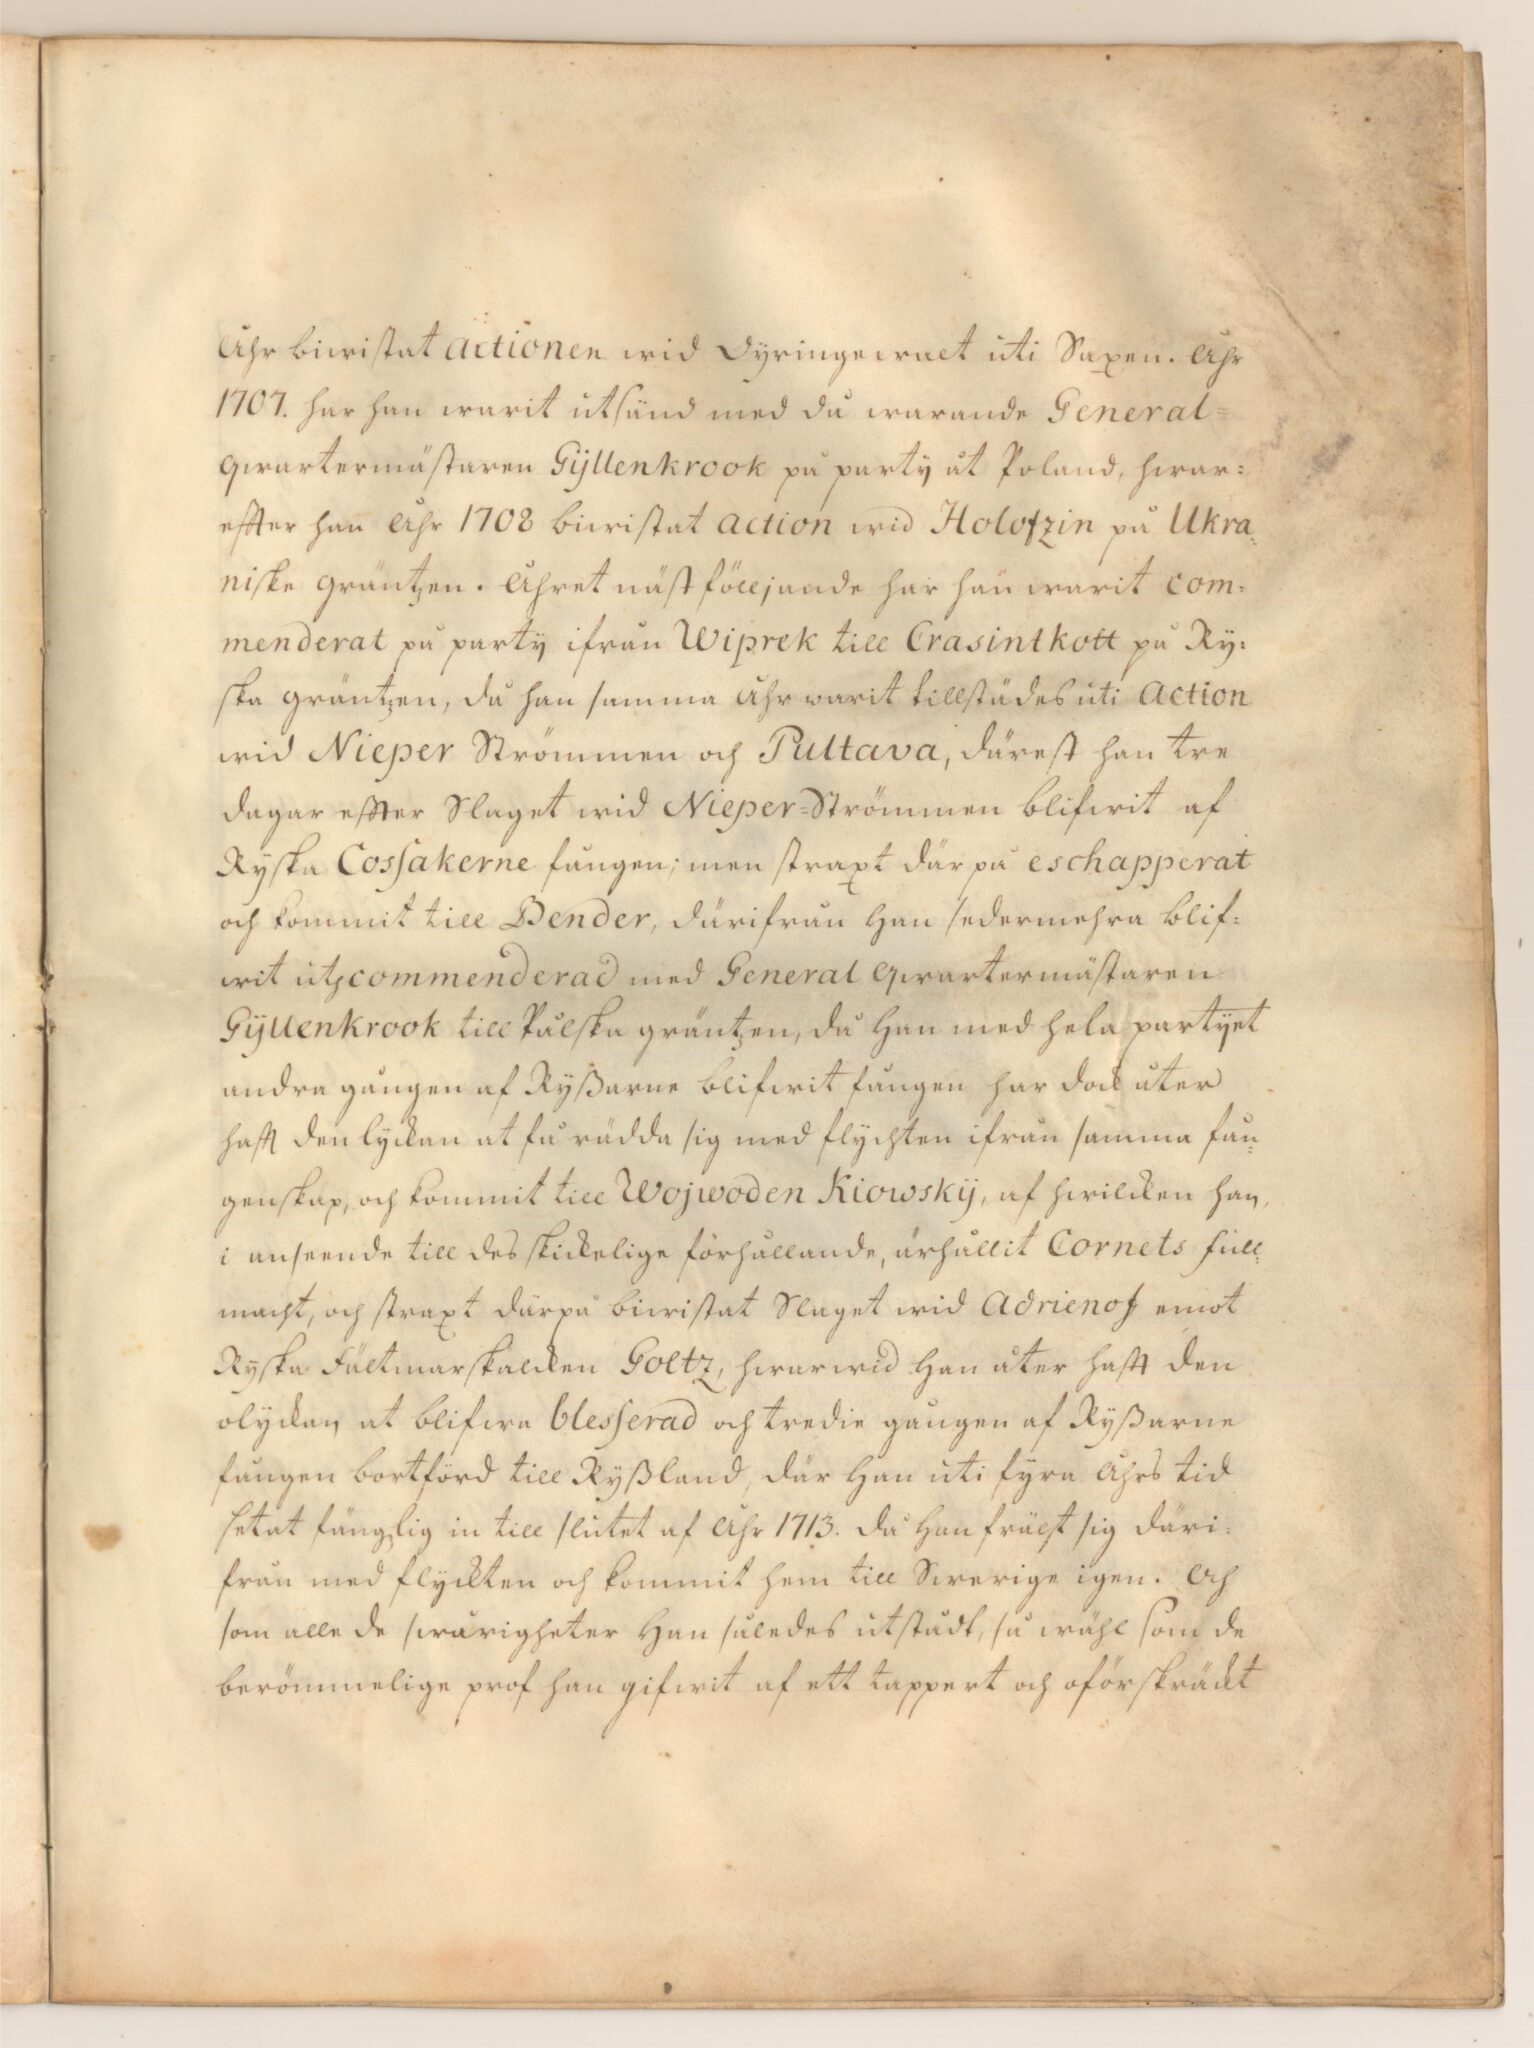 Åhr biwistat actionen wid Dyringewalt uti Saxen. Åhr
1707. har han warit utsänd med då warande General-
qwartermästaren Gÿllenkrook på party åt Poland, hwar-
effter han Åhr 1708 biwistat action wid Holofzin på Ukra-
niske gräntzen. Åhret näst fölljande har han warit com-
menderat på party ifrån Wiprek till Crasintkott på Ry-
ska gräntzen, då han samma Åhr warit tillstädes uti Action
wid Nieper Strömmen och Pultava, därest han tre
dagar effter Slaget wid Nieper-Strömmen blifwit af
Ryska Cossakerne fången; men straxt därpå eschapperat
och kommit till Bender, därifrån Han sedermehra blif-
wit utcommenderad med General Qwartermästaren
Gÿllenkrook till Pålska gräntzen, då Han med hela partyet
andra gången af Ryßarne blifwit fången, har dock åter
hafft den lyckan at få rädda sig med flychten ifrån samma fån-
genskap, och kommit till Wojwoden Kiowskÿ, af hwilcken han,
i anseende till des skickelige förhållande, ärhållit Cornets full-
macht, och straxt därpå biwistat Slaget wid Adrienof emot
Ryska Fältmarskalcken Goltz, hwarwid Han åter hafft den
olyckan at blifwa blesserad och tredie gången af Ryßarne
fången bortförd till Ryßland, där Han uti fyra Åhrs tid
setat fängslig in till slutet af Åhr 1713. då Han frälst sig däri-
från med flyckten och kommit hem till Swerige igen. Och
som alle de swårigheter Han således utstådt, så wähl som de
berömmelige prof han gifwit af ett tappert och oförskräckt